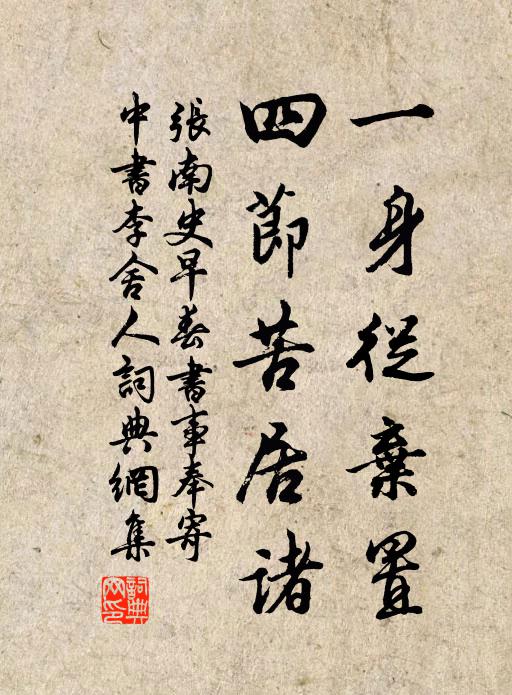 一身從棄置
四節苦居諸
張南史早春書事奉寄
中書李舍人詞典網集
詞典網印